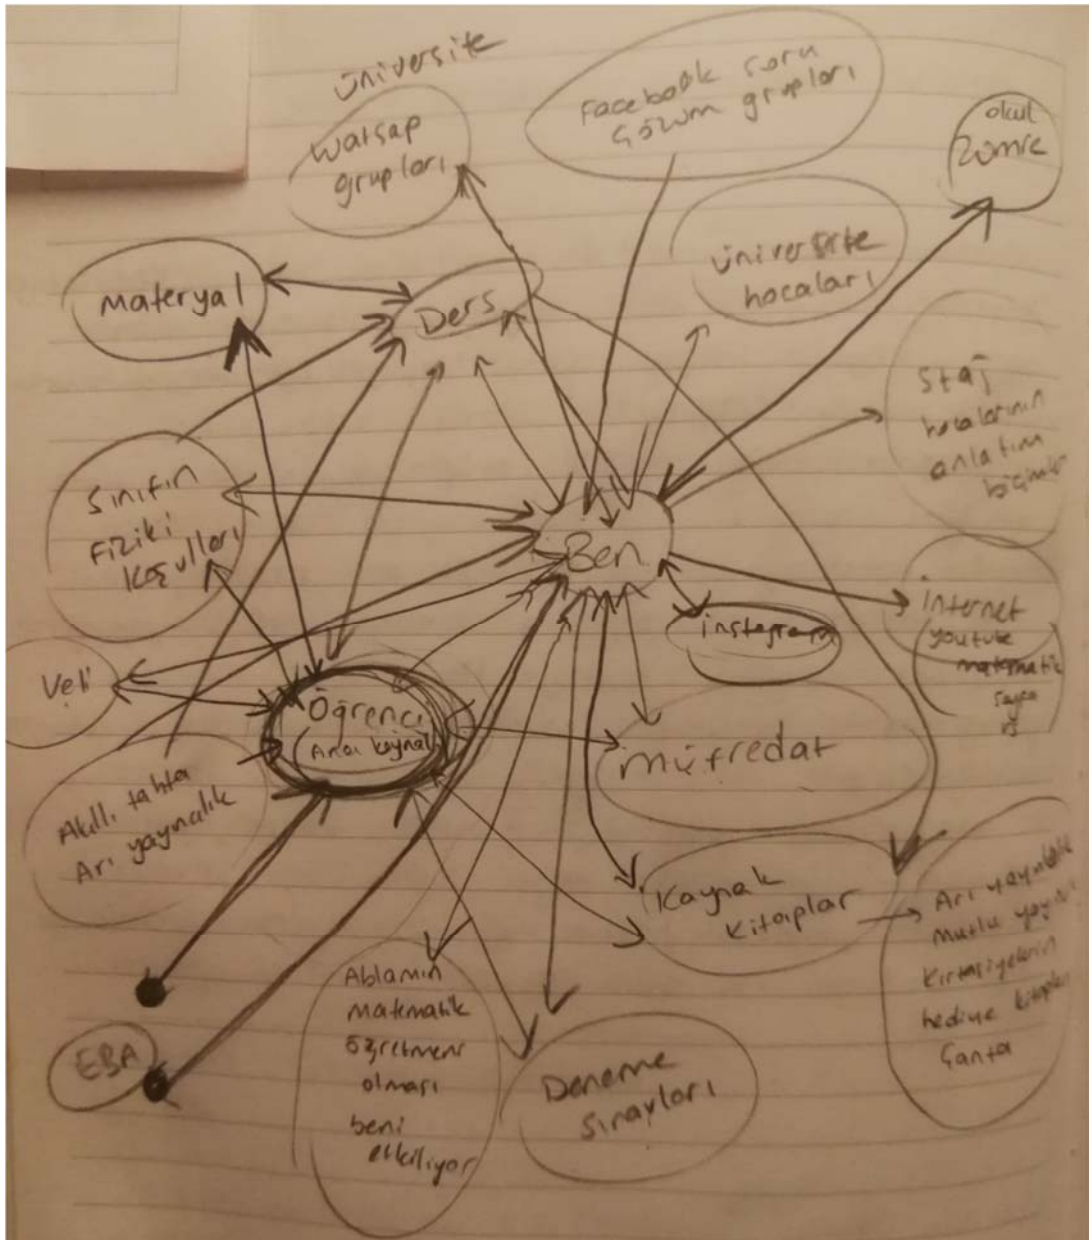 üniversite
watsap
grupları
Facebook soru
çözüm grupları
okul
zümre
üniversite
hocaları
materyal
Ders
Staj
hocalarının
anlatım
Sınıfın
Fiziki
koşulları
Ben
internet
youtube
matematik
instagram
Veli
Öğrenci
Ana kaynak
müfredat
Akıllı tahta
Arı yayıncılık
Kaynak
kitaplar
Arı yayıncılık
mutlu yayın
kırtasiyelerin
hediye kitapları
Çanta
EBA
Ablamın
matematik
öğretmeni
olması
beni
etkiliyor
Deneme
sınavları